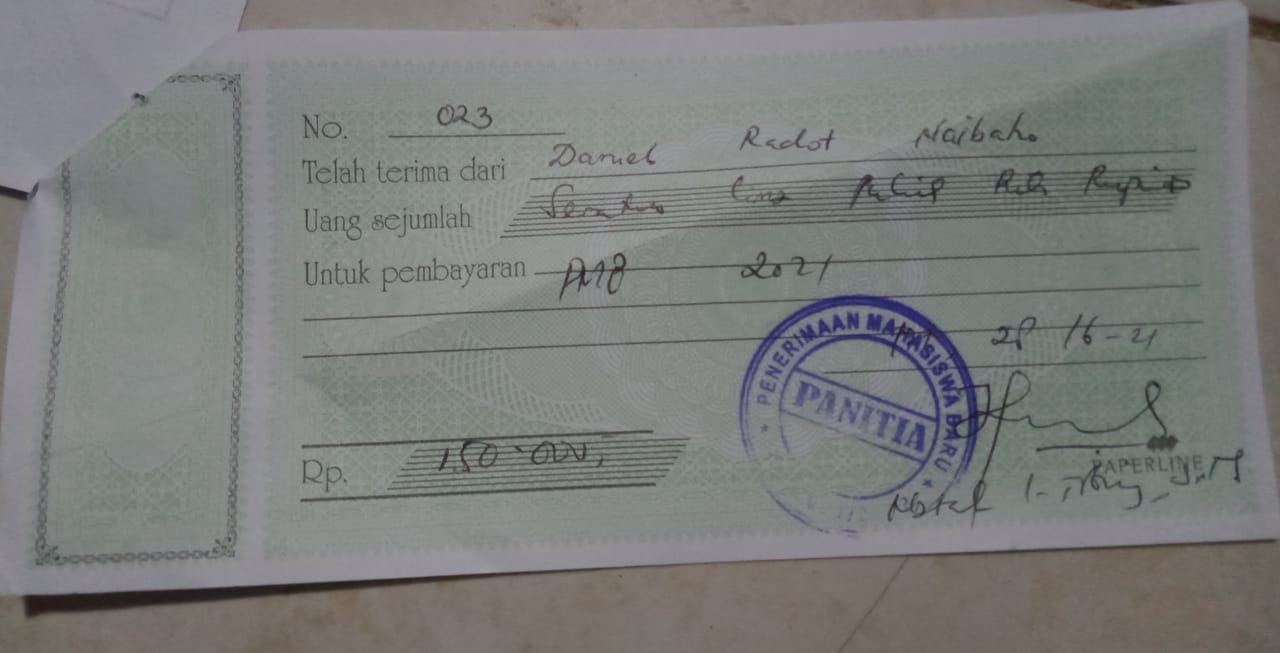 No. 023
Telah terima dari Daniel Radot Naibaho
Uang sejumlah Seratus Lima Puluh Ribu Rupiah
Untuk pembayaran PMB 2021
28 / 6 - 21
PENERIMAAN MAHASISWA BARU
PANITIA
Rp. 150.000,
PAPERLINE